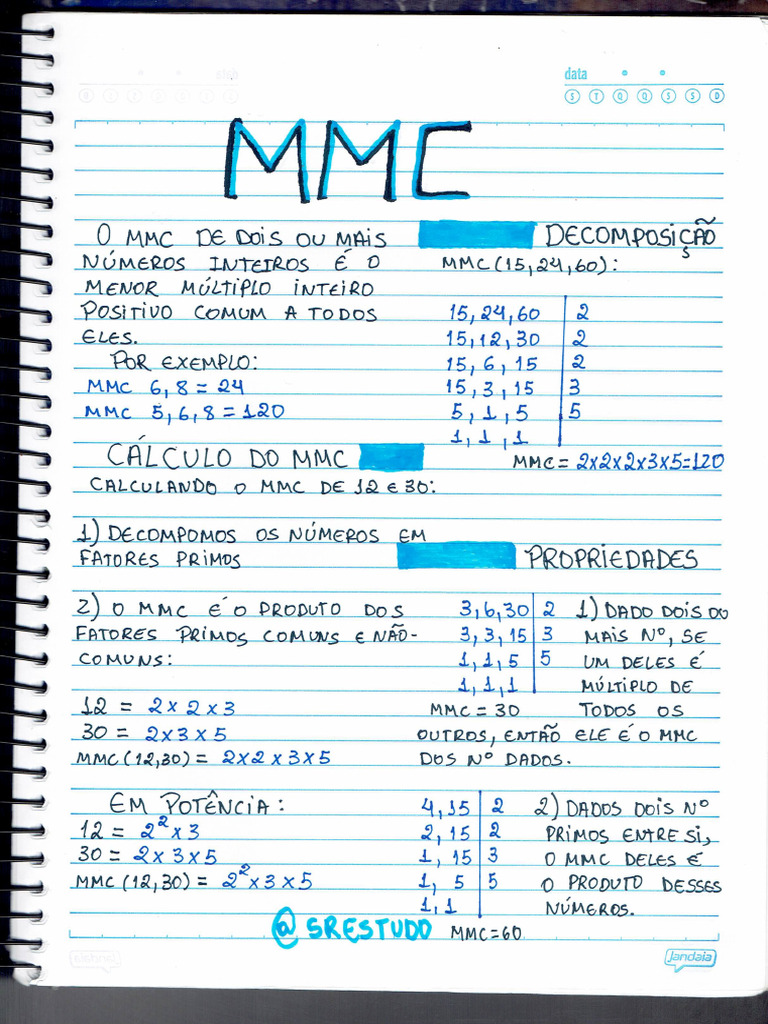 data
S T Q Q S S D
MMC
O MMC DE DOIS OU MAIS
NÚMEROS INTEIROS É O
MENOR MÚLTIPLO INTEIRO
POSITIVO COMUM A TODOS
ELES.
POR EXEMPLO:
MMC 6,8 = 24
MMC 5,6,8 = 120
CÁLCULO DO MMC
CALCULANDO O MMC DE 12 E 30:
1) DECOMPOMOS OS NÚMEROS EM
FATORES PRIMOS
2) O MMC É O PRODUTO DOS
FATORES PRIMOS COMUNS E NÃO-
COMUNS:
12 = 2 x 2 x 3
30 = 2 x 3 x 5
MMC (12,30) = 2 x 2 x 3 x 5
EM POTÊNCIA:
12 = 2² x 3
30 = 2 x 3 x 5
MMC (12,30) = 2² x 3 x 5
DECOMPOSIÇÃO
MMC (15,24,60):
15, 24, 60 | 2
15, 12, 30 | 2
15, 6, 15 | 2
15, 3, 15 | 3
5, 1, 5 | 5
1, 1, 1
MMC = 2x2x2x3x5=120
PROPRIEDADES
3, 6, 30 | 2 1) DADO DOIS OU
3, 3, 15 | 3 MAIS Nº, SE
1, 1, 5 | 5 UM DELES É
1, 1, 1 MÚLTIPLO DE
MMC = 30 TODOS OS
OUTROS, ENTÃO ELE É O MMC
DOS Nº DADOS.
4, 15 | 2 2) DADOS DOIS Nº
2, 15 | 2 PRIMOS ENTRE SI,
1, 15 | 3 O MMC DELES É
1, 5 | 5 O PRODUTO DESSES
1, 1 NÚMEROS.
MMC=60
@SRESTUDO
jandaia